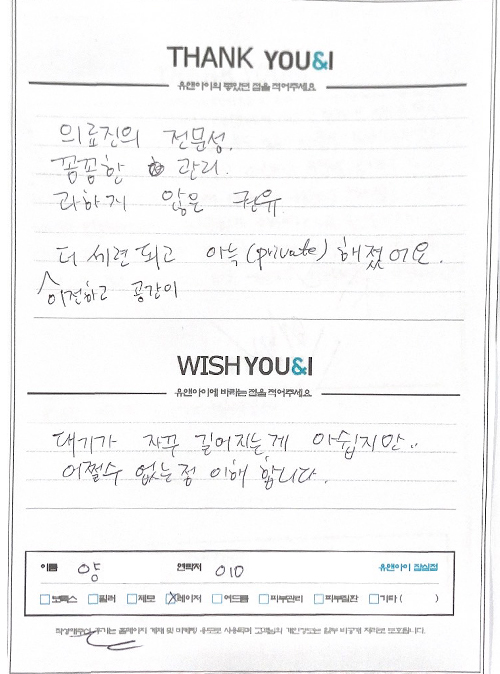 THANK YOU&I
유앤아이의 좋았던 점을 적어주세요
의료진의 전문성.
꼼꼼한 관리.
과하지 않은 권유
더 세련되고 아늑(private)해졌어요.
이전하고 공간이
WISH YOU&I
유앤아이에 바라는 점을 적어주세요
대기가 자꾸 길어지는게 아쉽지만..
어쩔수 없는점 이해 합니다.
이름 양 연락처 010 유앤아이 잠실점
보톡스 필러 제모 레이저 여드름 피부관리 피부질환 기타 ( )
작성해주신 후기는 홈페이지 게재 및 마케팅 용도로 사용되며 고객님의 개인정보는 일부 비공개 처리로 보호됩니다.